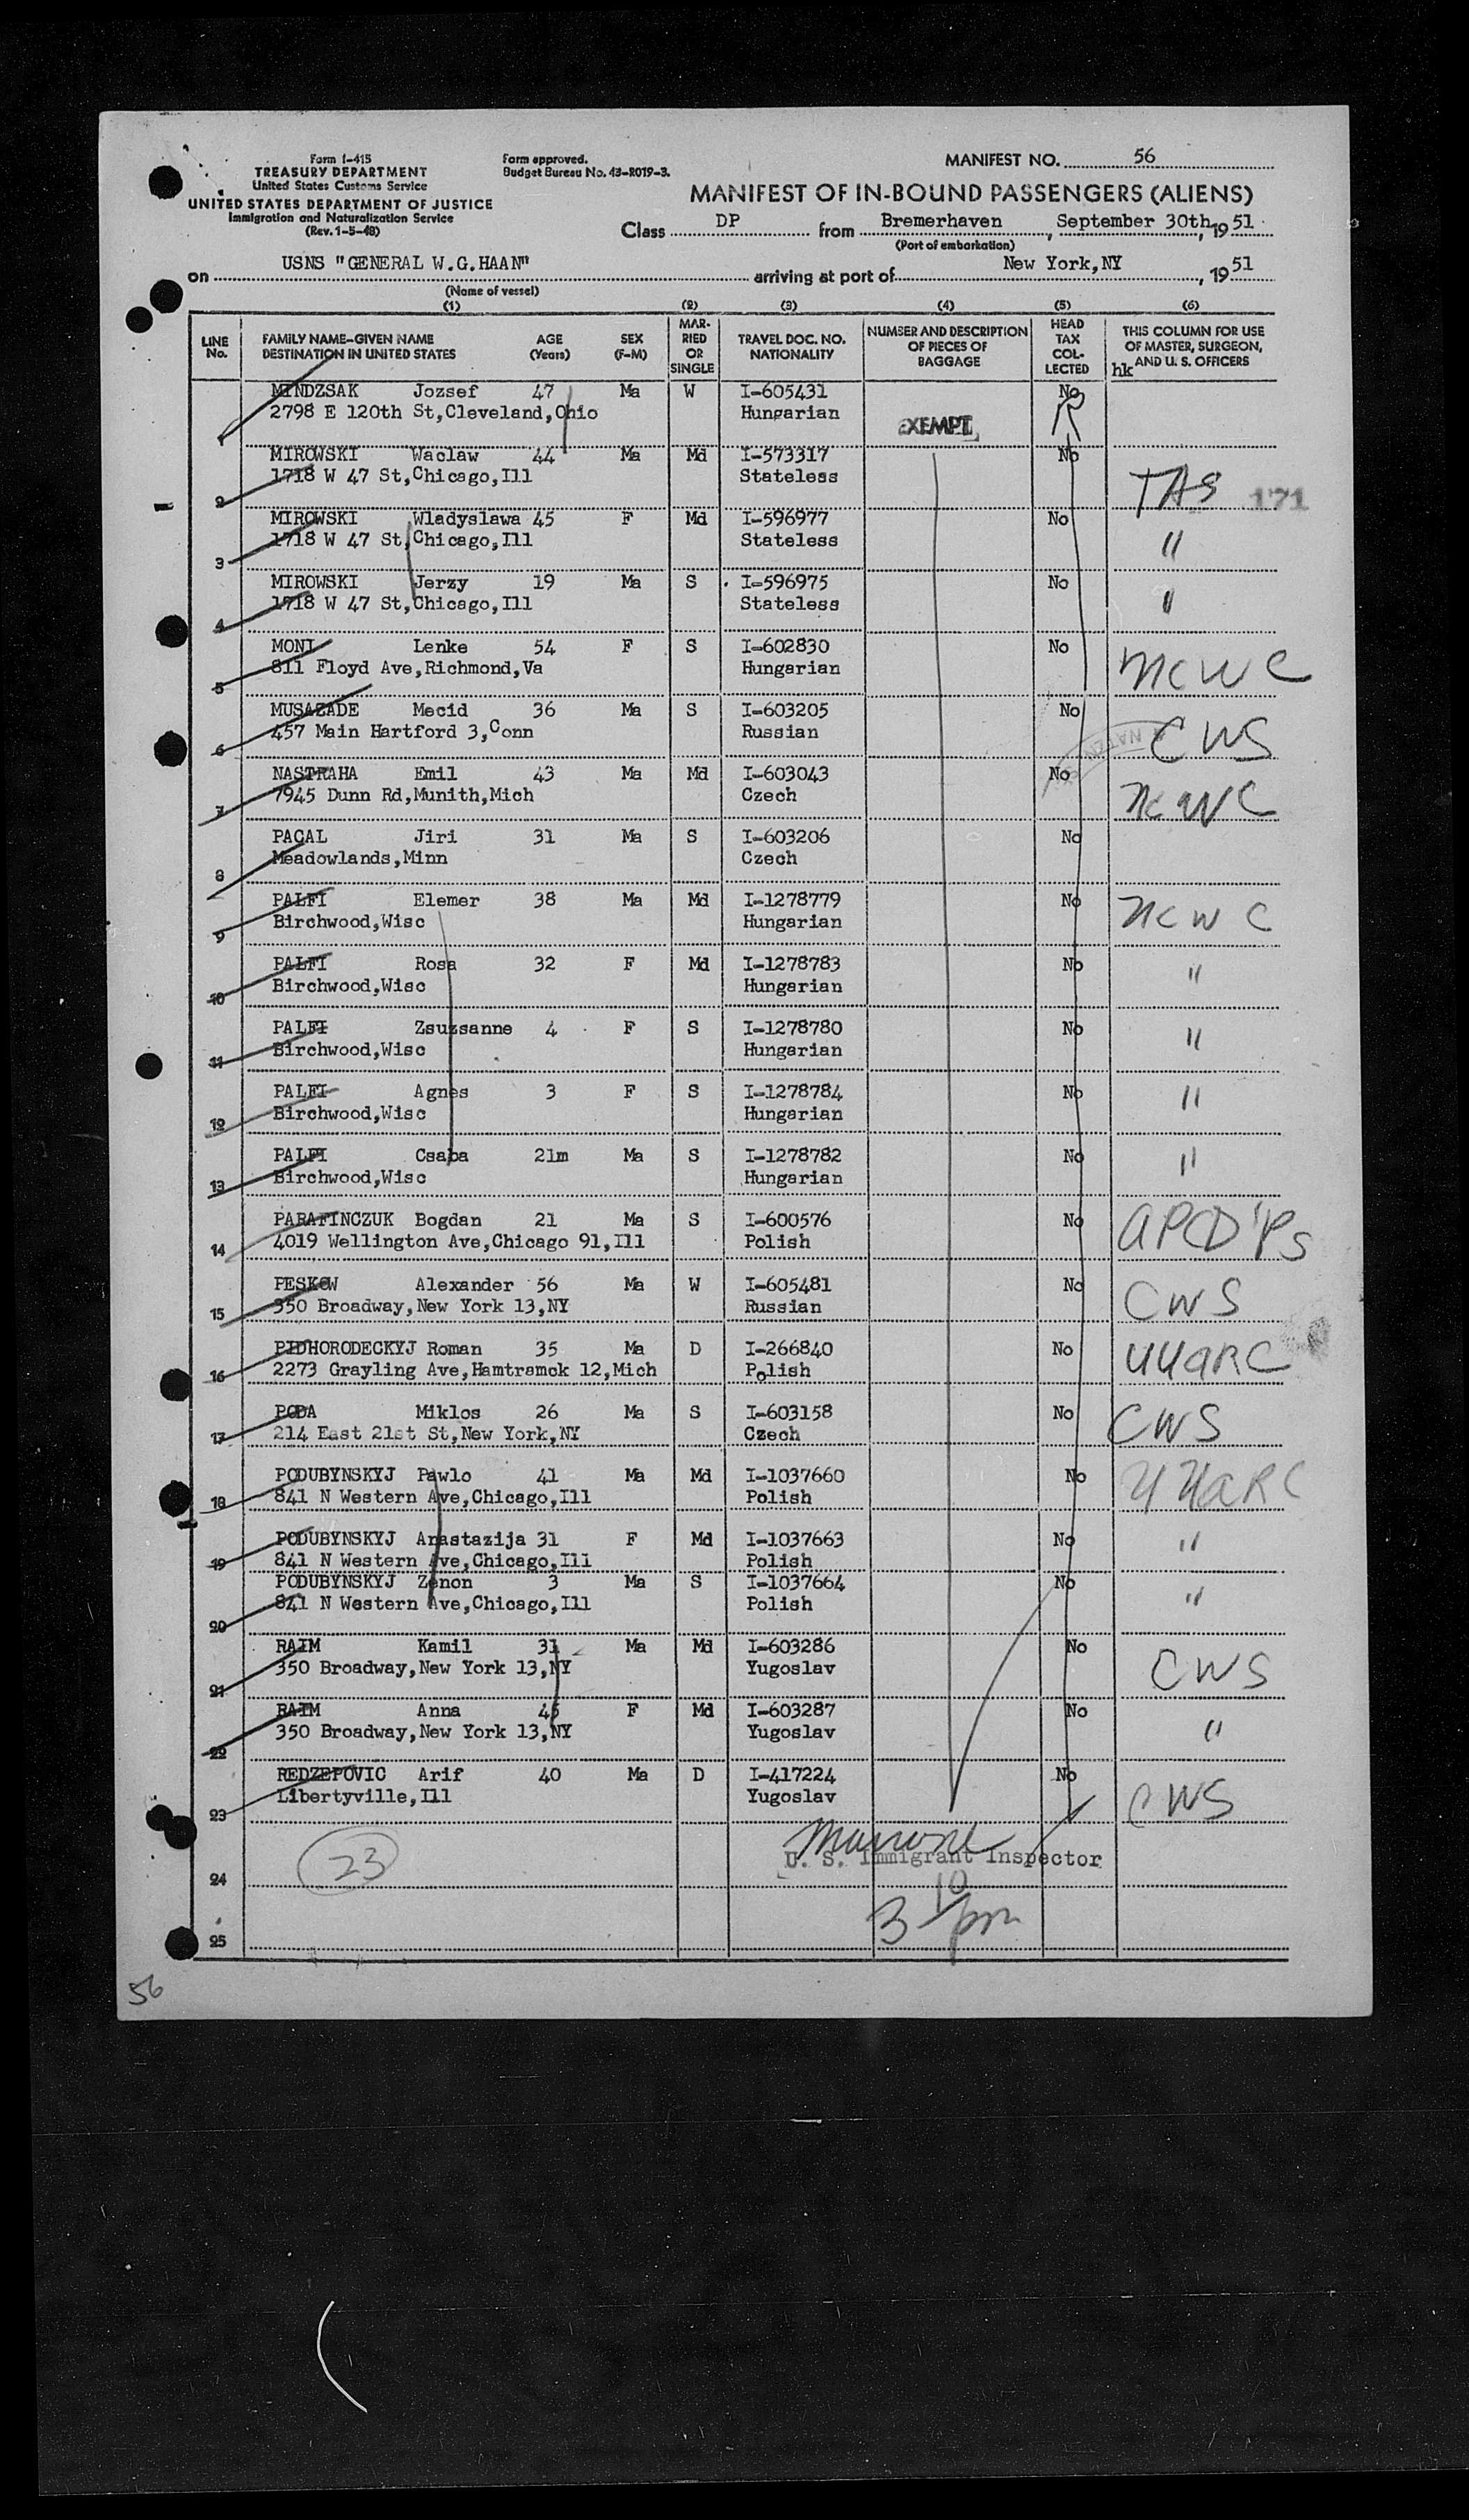 Form I-415
TREASURY DEPARTMENT
United States Customs Service
UNITED STATES DEPARTMENT OF JUSTICE
Immigration and Naturalization Service
(Rev. 1-5-48)
Form approved.
Budget Bureau No. 43-R019-3.
MANIFEST NO. 56
MANIFEST OF IN-BOUND PASSENGERS (ALIENS)
Class DP from Bremerhaven, September 30th, 1951
(Port of embarkation)
on USNS "GENERAL W.G.HAAN" arriving at port of New York,NY, 1951
(Name of vessel)
(1) (2) (3) (4) (5) (6)
LINE No. FAMILY NAME-GIVEN NAME DESTINATION IN UNITED STATES AGE (Years) SEX (F-M) MARRIED OR SINGLE TRAVEL DOC. NO. NATIONALITY NUMBER AND DESCRIPTION OF PIECES OF BAGGAGE HEAD TAX COLLECTED THIS COLUMN FOR USE OF MASTER, SURGEON, AND U. S. OFFICERS
hk
MINDZSAK Jozsef 47 Ma W I-605431 No
1 2798 E 120th St,Cleveland,Ohio Hungarian EXEMPT
MIROWSKI Waclaw 44 Ma Md I-573317 No
2 1718 W 47 St,Chicago,Ill Stateless TAS 171
MIROWSKI Wladyslawa 45 F Md I-596977 No
3 1718 W 47 St,Chicago,Ill Stateless "
MIROWSKI Jerzy 19 Ma S I-596975 No
4 1718 W 47 St,Chicago,Ill Stateless "
MONI Lenke 54 F S I-602830 No
5 811 Floyd Ave,Richmond,Va Hungarian NCWC
MUSAZADE Mecid 36 Ma S I-603205 No
6 457 Main Hartford 3,Conn Russian CWS
NASTRAHA Emil 43 Ma Md I-603043 No
7 7945 Dunn Rd,Munith,Mich Czech NCWC
PACAL Jiri 31 Ma S I-603206 No
8 Meadowlands,Minn Czech
PALFI Elemer 38 Ma Md I-1278779 No
9 Birchwood,Wisc Hungarian NCWC
PALFI Rosa 32 F Md I-1278783 No
10 Birchwood,Wisc Hungarian "
PALFI Zsuzsanne 4 F S I-1278780 No
11 Birchwood,Wisc Hungarian "
PALFI Agnes 3 F S I-1278784 No
12 Birchwood,Wisc Hungarian "
PALFI Csaba 21m Ma S I-1278782 No
13 Birchwood,Wisc Hungarian "
PARAFINCZUK Bogdan 21 Ma S I-600576 No
14 4019 Wellington Ave,Chicago 91,Ill Polish APCD'Ps
PESKOW Alexander 56 Ma W I-605481 No
15 350 Broadway,New York 13,NY Russian CWS
PIDHORODECKYJ Roman 35 Ma D I-266840 No
16 2273 Grayling Ave,Hamtramck 12,Mich Polish UUARC
PODA Miklos 26 Ma S I-603158 No
17 214 East 21st St,New York,NY Czech CWS
PODUBYNSKYJ Pawlo 41 Ma Md I-1037660 No
18 841 N Western Ave,Chicago,Ill Polish UUARC
PODUBYNSKYJ Anastazija 31 F Md I-1037663 No
19 841 N Western Ave,Chicago,Ill Polish "
PODUBYNSKYJ Zenon 3 Ma S I-1037664 No
20 841 N Western Ave,Chicago,Ill Polish "
RAIM Kamil 31 Ma Md I-603286 No
21 350 Broadway,New York 13,NY Yugoslav CWS
RAIM Anna 45 F Md I-603287 No
22 350 Broadway,New York 13,NY Yugoslav "
REDZEPOVIC Arif 40 Ma D I-417224 No
23 Libertyville,Ill Yugoslav CWS
23
U. S. Immigrant Inspector
24
3 10 pm
25
56